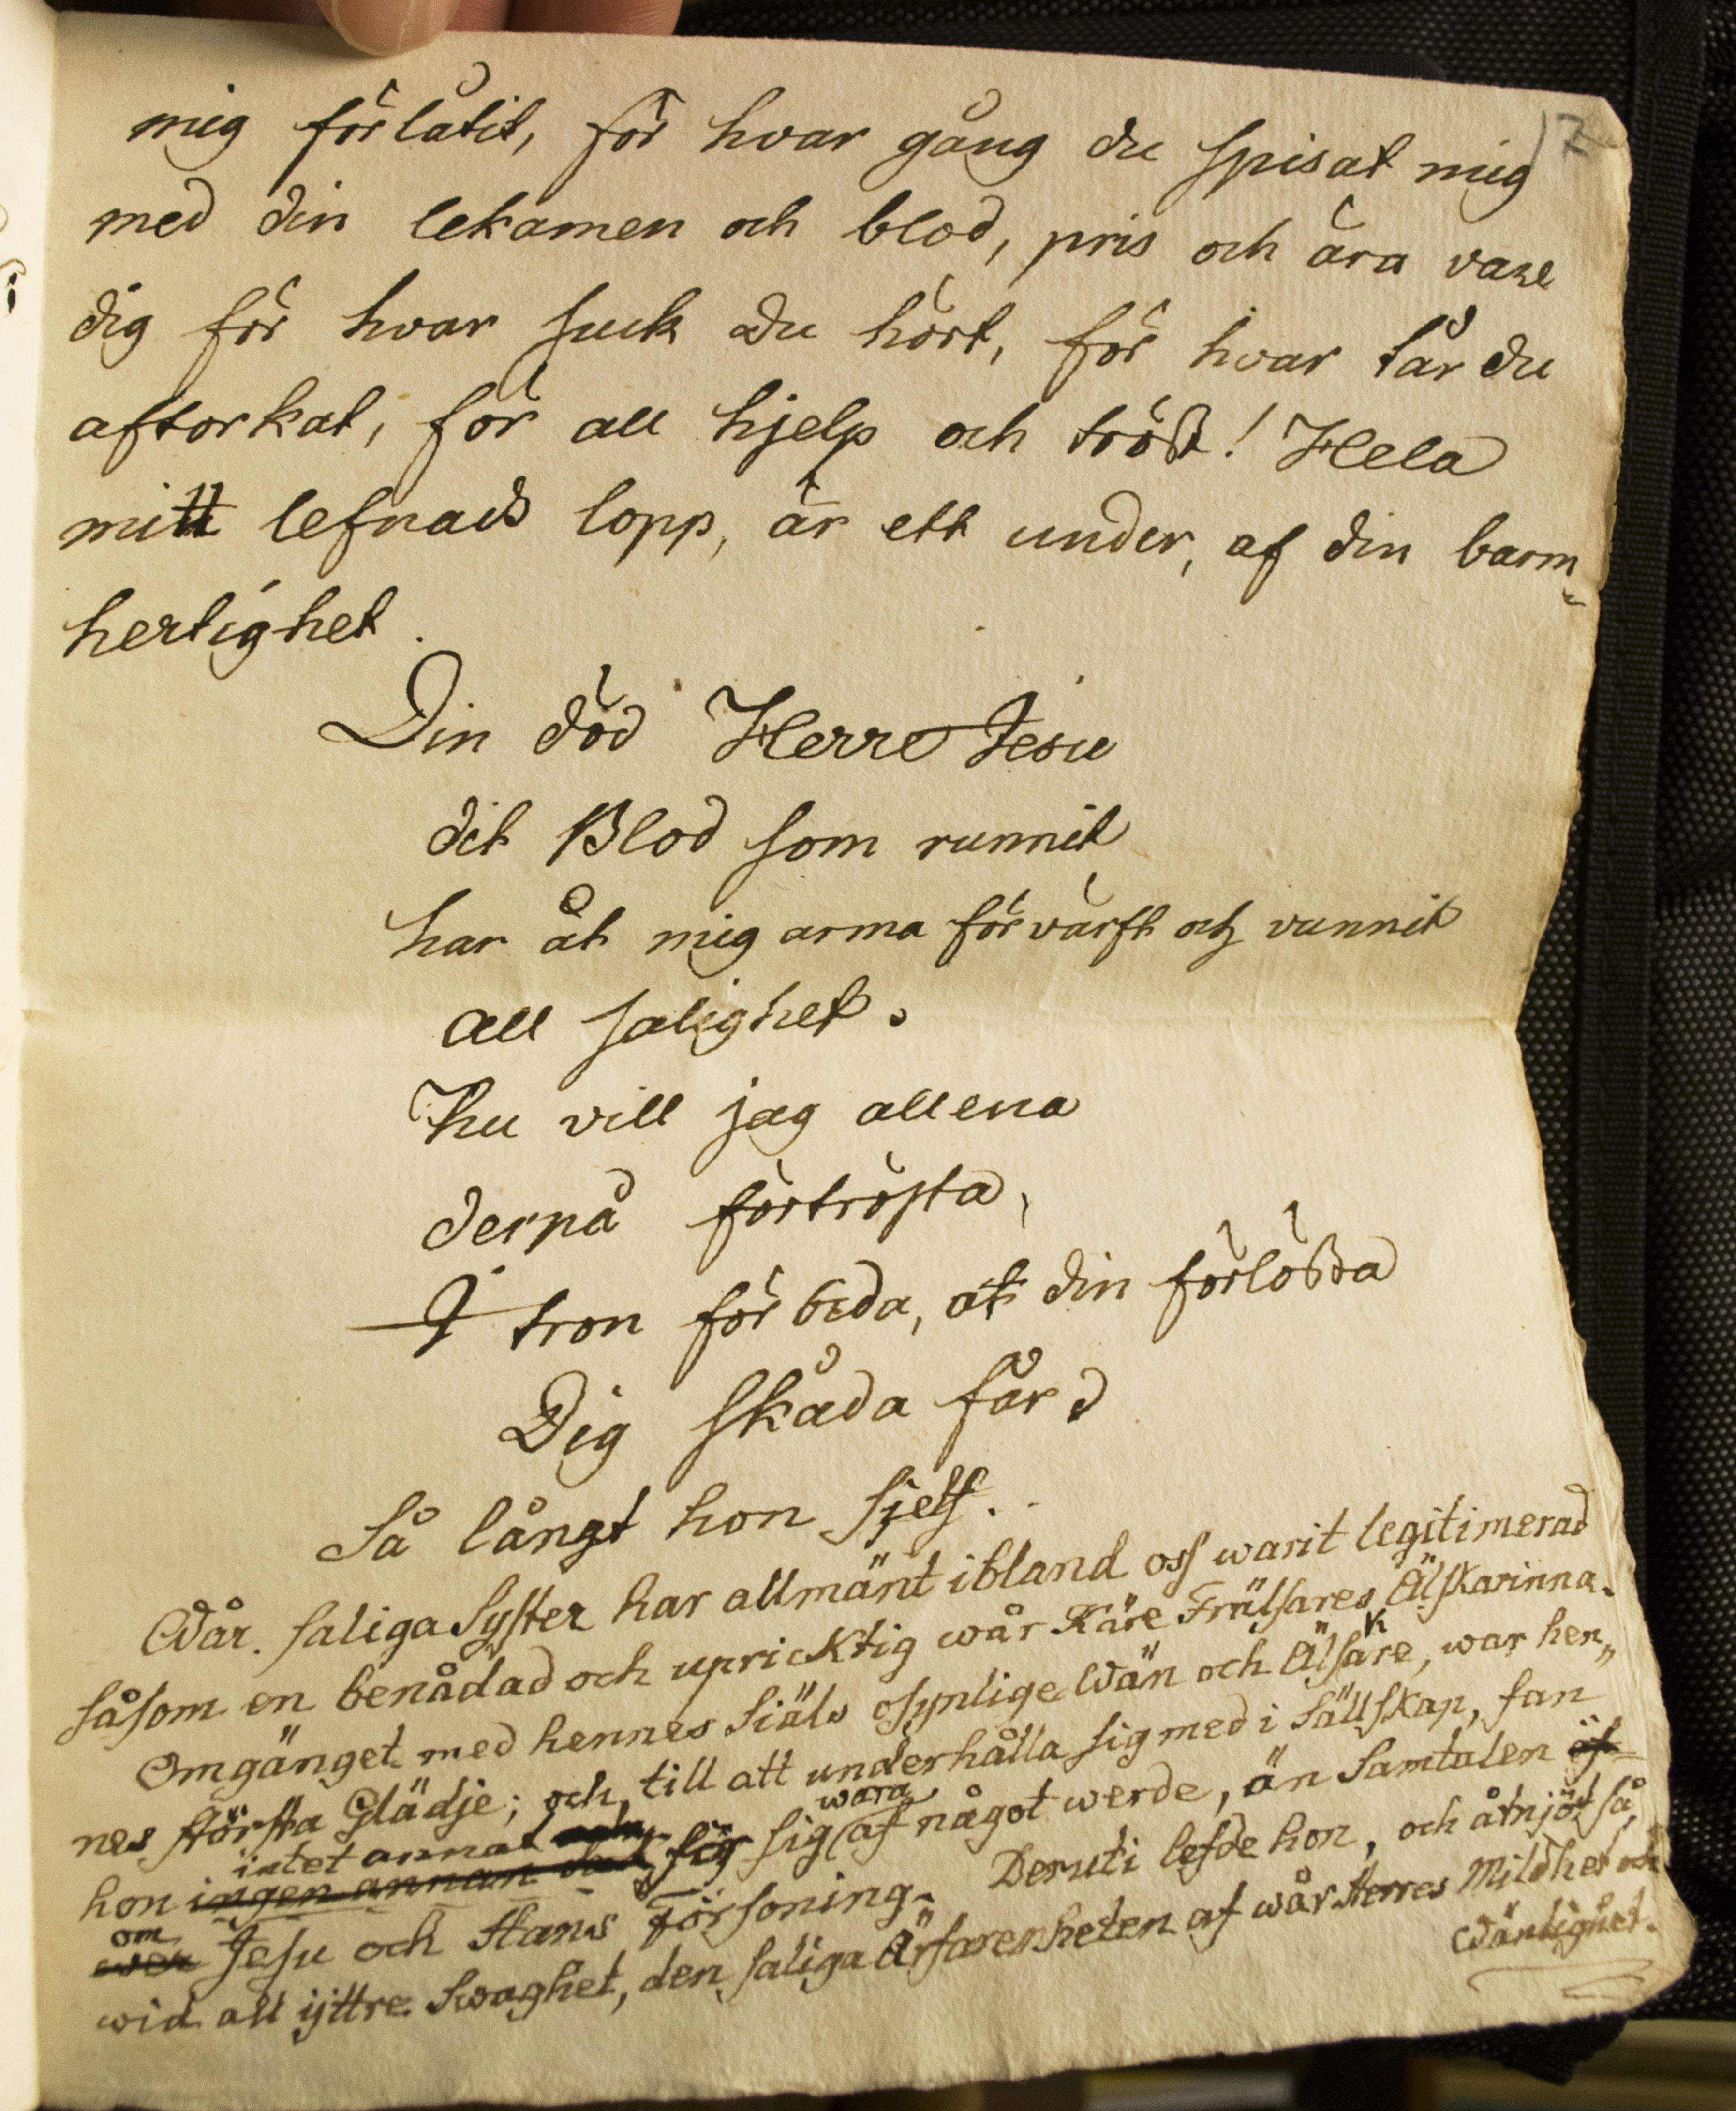 17
mig förlåtit, för hvar gång du spisat mig
med din lekamen och blod, pris och ära vare
dig för hvar suck du hört, för hvar tår du
aftorkat, för all hjelp och tröst! Hela
mitt lefnads lopp, är ett under, af din barm„
hertighet.
Din död Herre Jesu
dit Blod som runnit
har åt mig arma förvärft och vunnit
all salighet.
Nu vill jag allena
derpå förtrösta,
I tron förbida, at din förlösta
Dig skåda får
Så långt hon sjelf.
Wår saliga Syster har allmänt ibland oss warit legitimerad
såsom en benådad och upricktig wår Käre Frälsares Älskarinna.
Omgänget med hennes Siäls osynlige Wän och Älskare, war hen„
nes största Glädje; och till att underhålla sig med i Sällskap, fan
hon ingen annan intet annat sig wara af något werde, än Samtalen öf
wer om Jesu och Hans Försoning. Deruti lefde hon, och åtnjöt så,
wid all yttre Swaghet, den saliga Ärfarenheten af wår Herres Mildhet och
Wänlighet.